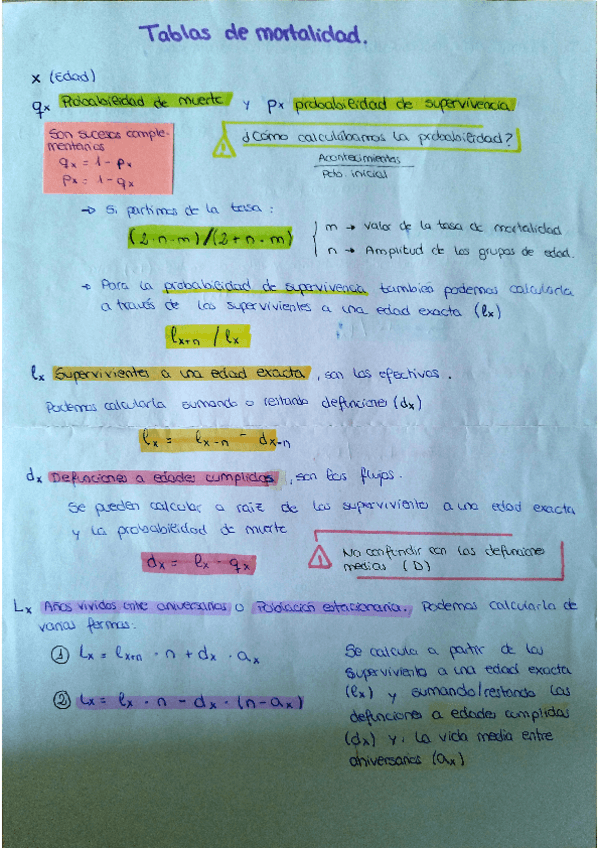 Tablas de mortalidad.
x (Edad)
qx Probabilidad de muerte y px probabilidad de supervivencia
Son sucesos comple-
mentarios
qx = 1 - px
px = 1 - qx
¿Cómo calculábamos la probabilidad?
Acontecimientos
Pcto. inicial
→ Si partimos de la tasa:
(2·n·m)/(2+n·m)
m → valor de la tasa de mortalidad
n → Amplitud de los grupos de edad.
→ Para la probabilidad de supervivencia también podemos calcularla
a través de los supervivientes a una edad exacta (lx)
lx+n / lx
lx Supervivientes a una edad exacta, son los efectivos.
Podemos calcularla sumando o restando defunciones (dx)
lx = lx-n - dx-n
dx Defunciones a edades cumplidas, son los flujos.
Se pueden calcular a raíz de los supervivientes a una edad exacta
y la probabilidad de muerte
dx = lx · qx
No confundir con las defunciones
medias (D)
Lx Años vividos entre aniversarios o Población estacionaria. Podemos calcularla de
varias formas:
① Lx = lx+n · n + dx · ax
② Lx = lx · n - dx · (n-ax)
Se calcula a partir de los
supervivientes a una edad exacta
(lx) y sumando/restando las
defunciones a edades cumplidas
(dx) y la vida media entre
aniversarios (ax)